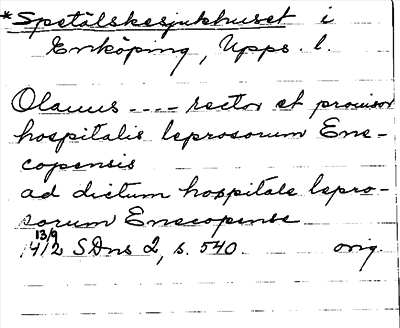 *Spetälskesjukhuset i
Enköping, Upps. l.
Olauus ---- rector et prouisor
hospitalis leprosorum Ene-
copensis
ad dictum hospitale lepro-
sorum Enecopense
13/9 1412 SDns 2, s. 540. orig.